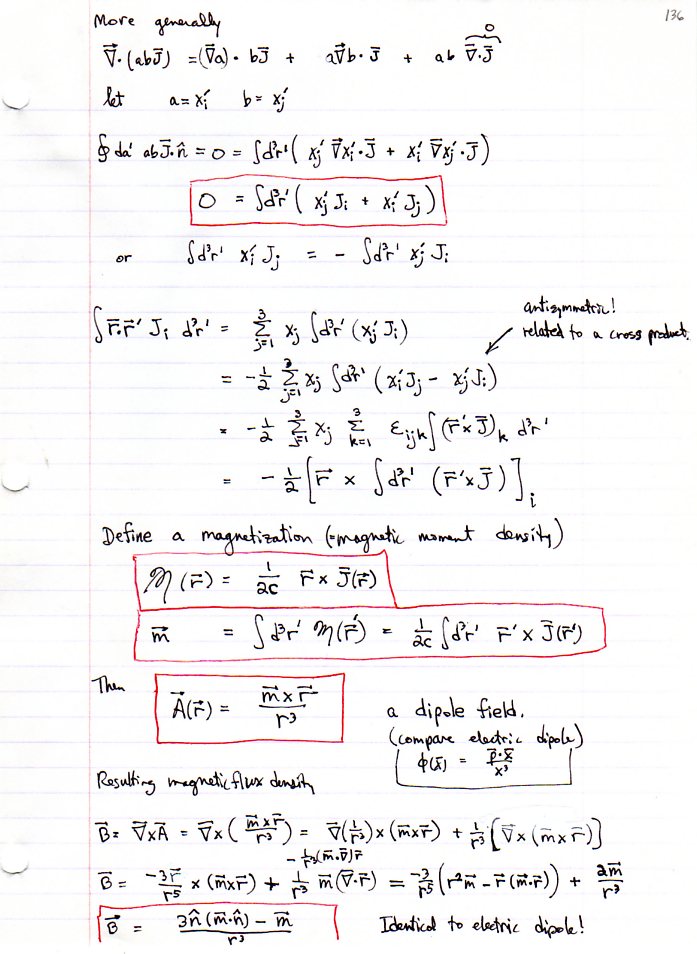 136
More generally
∇⃗·(abJ̄) = (∇⃗a)·bJ̄ + a∇⃗b·J̄ + ab ∇⃗·J̄ 0
let a = xᵢ′ b = xⱼ′
∮da′ abJ̄·n̂ = 0 = ∫d³r′( xⱼ′ ∇⃗xᵢ′·J̄ + xᵢ′ ∇⃗xⱼ′·J̄)
0 = ∫d³r′( xⱼ′Jᵢ + xᵢ′Jⱼ)
or ∫d³r′ xᵢ′Jⱼ = - ∫d³r′ xⱼ′Jᵢ
antisymmetric!
related to a cross product.
∫r̄·r̄′ Jᵢ d³r′ = Σ_{j=1}^{3} xⱼ ∫d³r′ (xⱼ′Jᵢ)
= -1/2 Σ_{j=1}^{3} xⱼ ∫d³r′ (xᵢ′Jⱼ - xⱼ′Jᵢ)
= -1/2 Σ_{j=1}^{3} xⱼ Σ_{k=1}^{3} ε_{ijk} ∫(r̄′×J̄)ₖ d³r′
= -1/2 [r⃗ × ∫d³r′ (r̄′×J̄)]ᵢ
Define a magnetization (=magnetic moment density)
ℳ(r⃗) = 1/2c r⃗ × J̄(r⃗)
m⃗ = ∫d³r′ ℳ(r⃗′) = 1/2c ∫d³r′ r⃗′ × J̄(r⃗′)
Then
A⃗(r⃗) = m⃗×r⃗/r³
a dipole field.
(compare electric dipole)
ϕ(x̄) = p̄·x̄/x³
Resulting magnetic flux density
B̄ = ∇⃗×A⃗ = ∇⃗×(m⃗×r⃗/r³) = ∇⃗(1/r³)×(m⃗×r⃗) + 1/r³[∇⃗×(m⃗×r⃗)]
-1/r³(m⃗·∇⃗)r⃗
B̄ = -3r⃗/r⁵ × (m⃗×r⃗) + 1/r³ m⃗(∇⃗·r⃗) = -3/r⁵(r²m⃗ - r⃗(m⃗·r⃗)) + 2m⃗/r³
B⃗ = 3n̂(m⃗·n̂) - m⃗/r³
Identical to electric dipole!